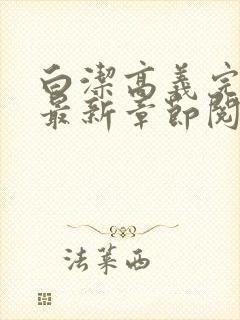 白潔高義完
最新章節閱
法萊西